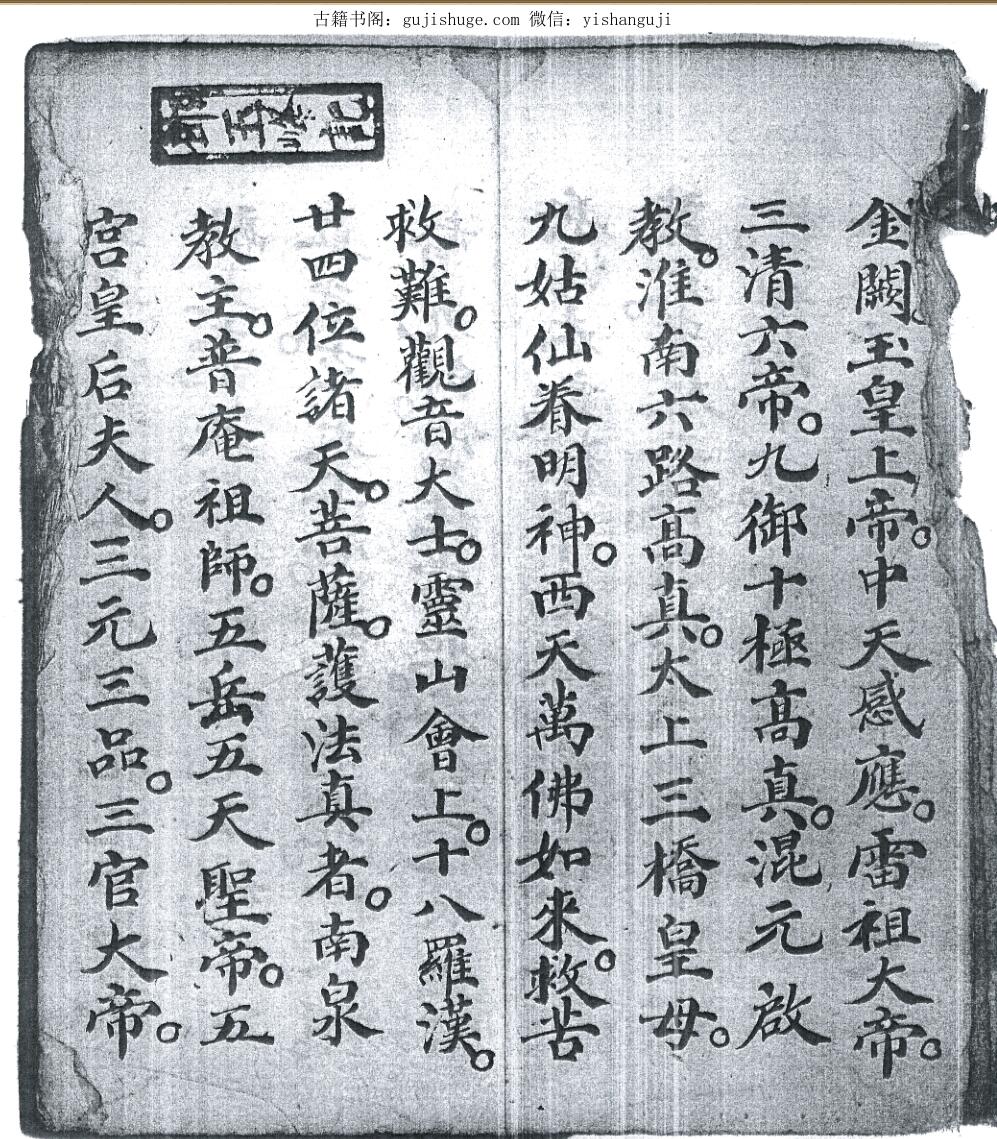 古籍书阁：gujishuge.com 微信：yishanguji
金闕玉皇上帝。中天感應。雷祖大帝。
三清六帝。九御十極高真。混元啟
教。淮南六路高真。太上三橋皇母。
九姑仙眷明神。西天萬佛如來。救苦
救難。觀音大士。靈山會上。十八羅漢。
廿四位諸天。菩薩。護法真者。南泉
教主。普庵祖師。五岳五天聖帝。五
宫皇后夫人。三元三品。三官大帝。